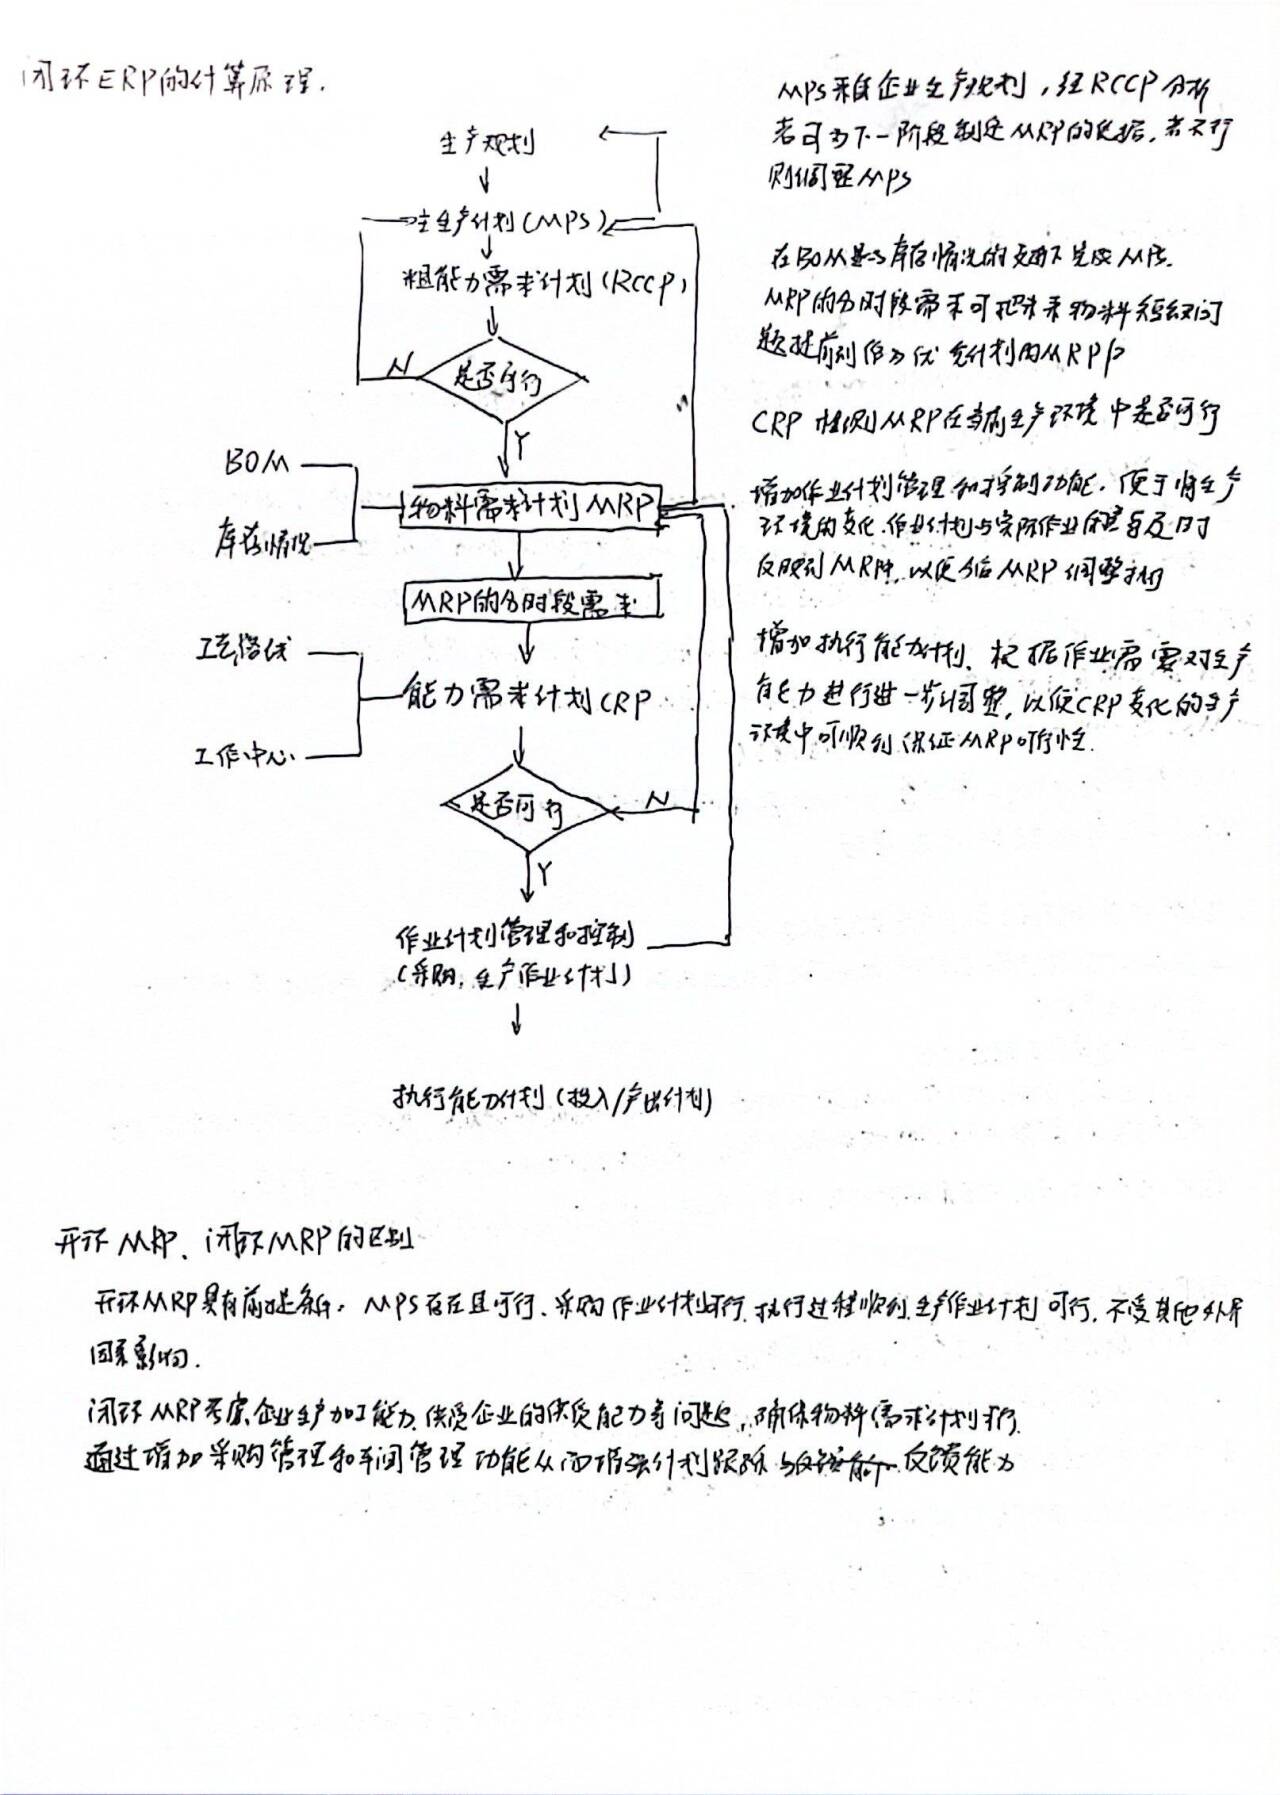 闭环ERP的计算原理.
生产规划
主生产计划(MPS)
粗能力需求计划(RCCP)
是否可行
N
Y
BOM
库存情况
物料需求计划MRP
MRP的分时段需求
工艺路线
工作中心
能力需求计划CRP
是否可行
N
Y
作业计划管理和控制
(采购,生产作业计划)
执行能力计划(投入/产出计划)
MPS来自企业生产规划,经RCCP分析
若可为下一阶段制定MRP的依据,若不行
则调整MPS
在BOM是与库存情况的支持下完成MPS.
MRP的分时段需求可把未来物料短缺问
题提前到作为优先计划的MRP中
CRP检测MRP在当前生产环境中是否可行
增加作业计划管理和控制功能,便于将生产
环境的变化.作业计划与实际作业的差异及时
反映到MRP中,以便今后MRP调整
增加执行能力计划.根据作业需要对生产
能力进行进一步调整,以便CRP变化的生产
环境中可顺利保证MRP可行性.
开环MRP、闭环MRP的区别
开环MRP具有前提条件:MPS存在且可行、采购作业计划可行.执行过程顺利.生产作业计划可行.不受其他外界
因素影响.
闭环MRP考虑企业生产加工能力.供应企业的供应能力等问题,确保物料需求计划可行.
通过增加采购管理和车间管理功能从而增强计划跟踪与反馈能力